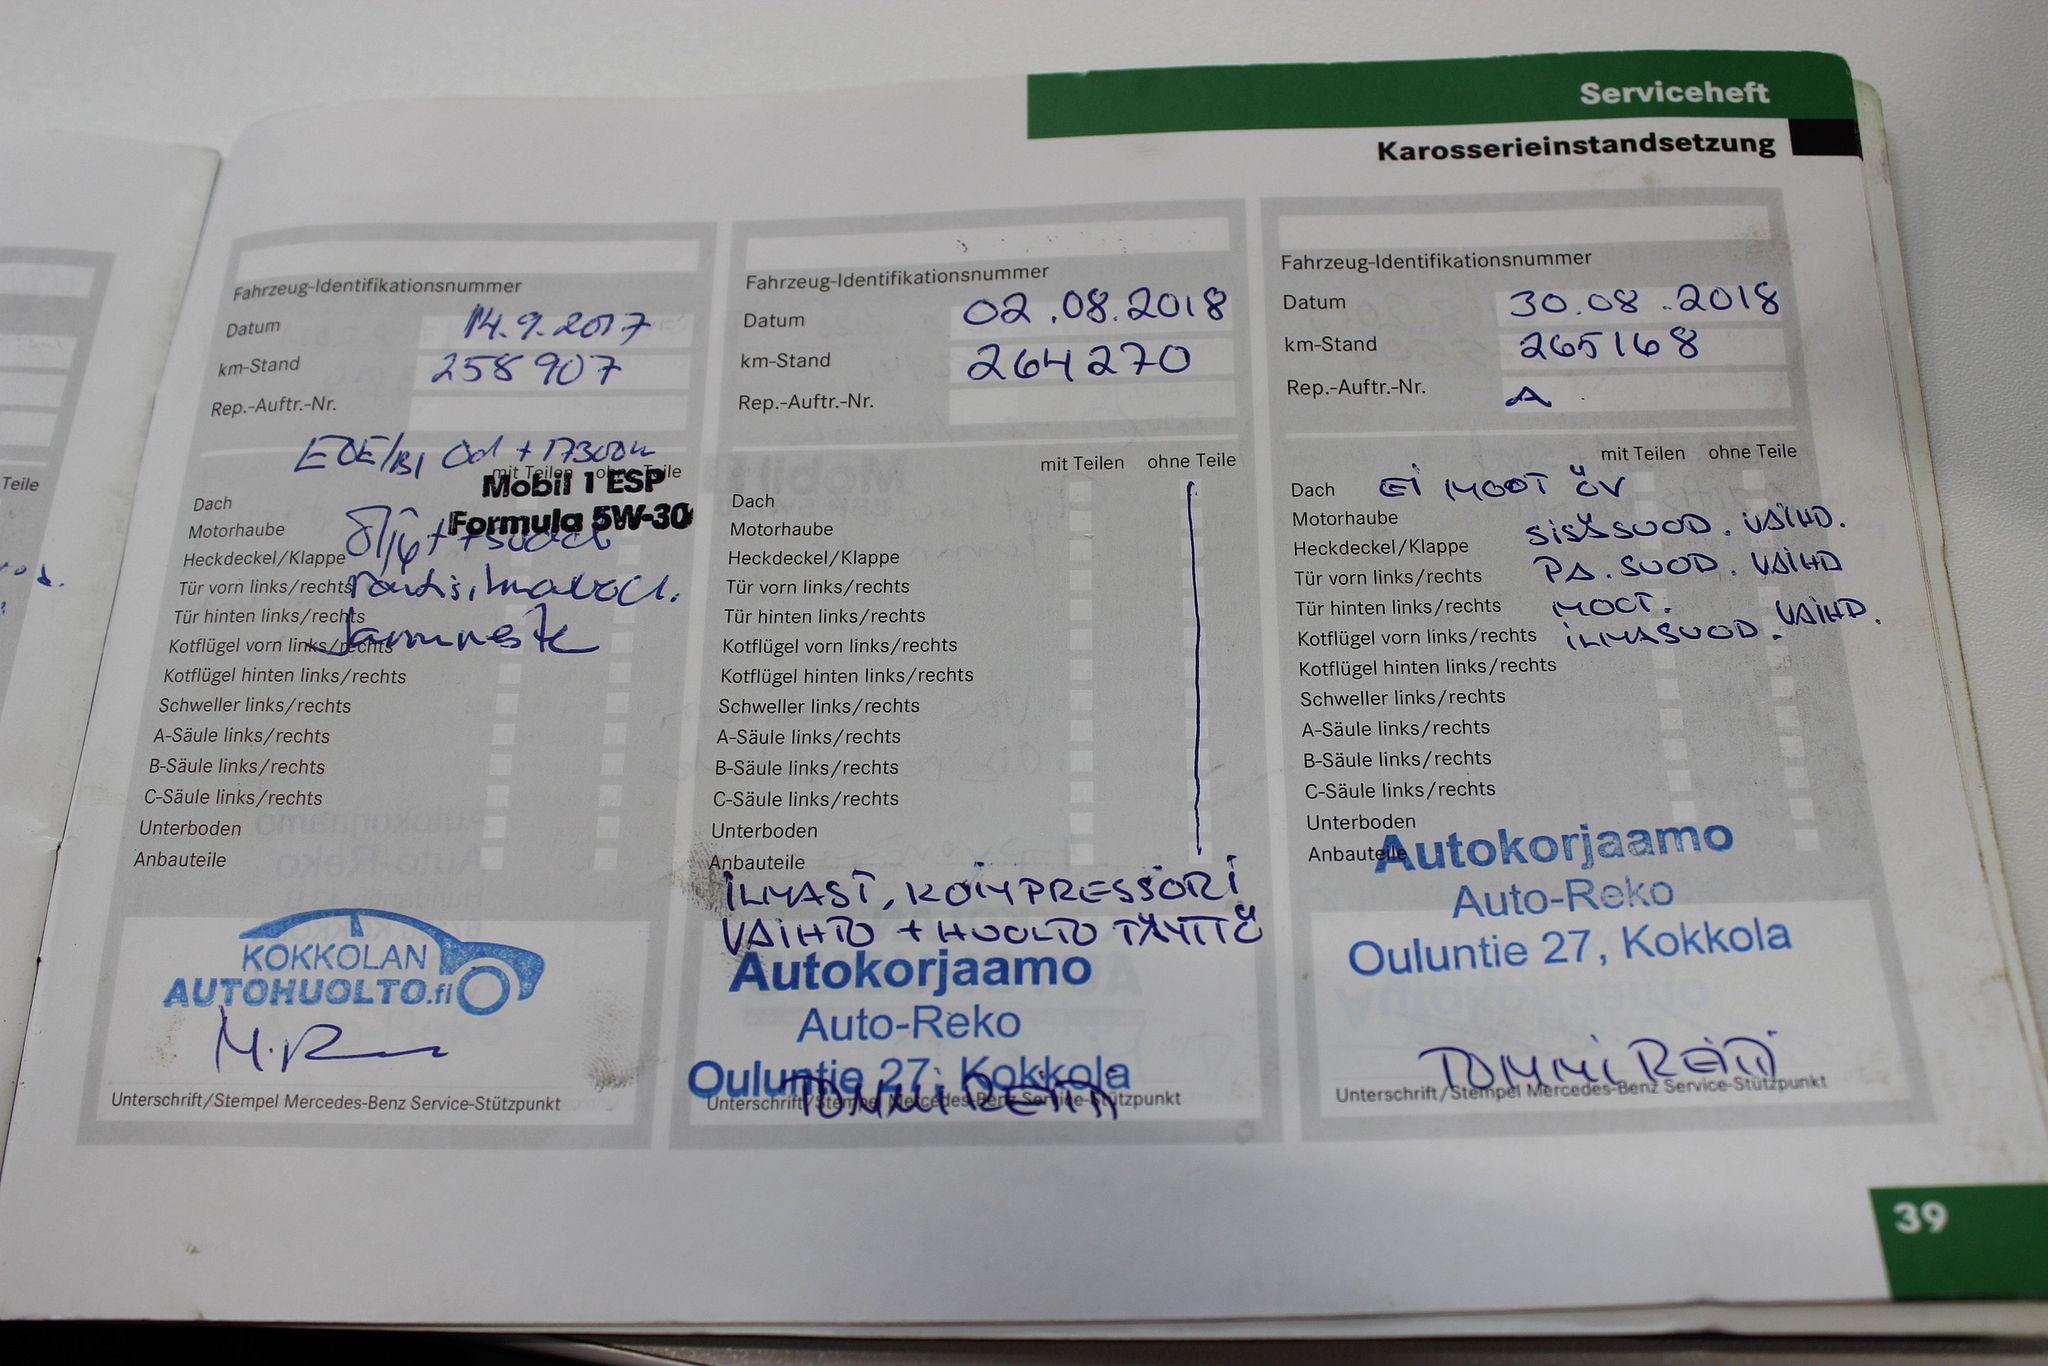 Teile
Serviceheft
Karosserieinstandsetzung
Fahrzeug-Identifikationsnummer
Datum 14.9.2017
km-Stand 258907
Rep.-Auftr.-Nr.
mit Teilen ohne Teile
Mobil 1 ESP
Formula 5W-30
Dach
Motorhaube
Heckdeckel/Klappe
Tür vorn links/rechts
Tür hinten links/rechts
Kotflügel vorn links/rechts
Kotflügel hinten links/rechts
Schweller links/rechts
A-Säule links/rechts
B-Säule links/rechts
C-Säule links/rechts
Unterboden
Anbauteile
KOKKOLAN
AUTOHUOLTO.fi
Unterschrift/Stempel Mercedes-Benz Service-Stützpunkt
Fahrzeug-Identifikationsnummer
Datum 02.08.2018
km-Stand 264270
Rep.-Auftr.-Nr.
mit Teilen ohne Teile
Dach
Motorhaube
Heckdeckel/Klappe
Tür vorn links/rechts
Tür hinten links/rechts
Kotflügel vorn links/rechts
Kotflügel hinten links/rechts
Schweller links/rechts
A-Säule links/rechts
B-Säule links/rechts
C-Säule links/rechts
Unterboden
Anbauteile
ILMAST, KOMPRESSORI
VAIHTO + HUOLTO TÄYTTÖ
Autokorjaamo
Auto-Reko
Ouluntie 27, Kokkola
TOMMI REITTI
Unterschrift/Stempel Mercedes-Benz Service-Stützpunkt
Fahrzeug-Identifikationsnummer
Datum 30.08.2018
km-Stand 265168
Rep.-Auftr.-Nr. A
mit Teilen ohne Teile
Dach EI MOOT ÖV
Motorhaube SISÄSUOD. VAIHD.
Heckdeckel/Klappe PA. SUOD. VAIHD
Tür vorn links/rechts
Tür hinten links/rechts MOOT.
Kotflügel vorn links/rechts ILMASUOD. VAIHD.
Kotflügel hinten links/rechts
Schweller links/rechts
A-Säule links/rechts
B-Säule links/rechts
C-Säule links/rechts
Unterboden
Anbauteile
Autokorjaamo
Auto-Reko
Ouluntie 27, Kokkola
TOMMI REITTI
Unterschrift/Stempel Mercedes-Benz Service-Stützpunkt
39